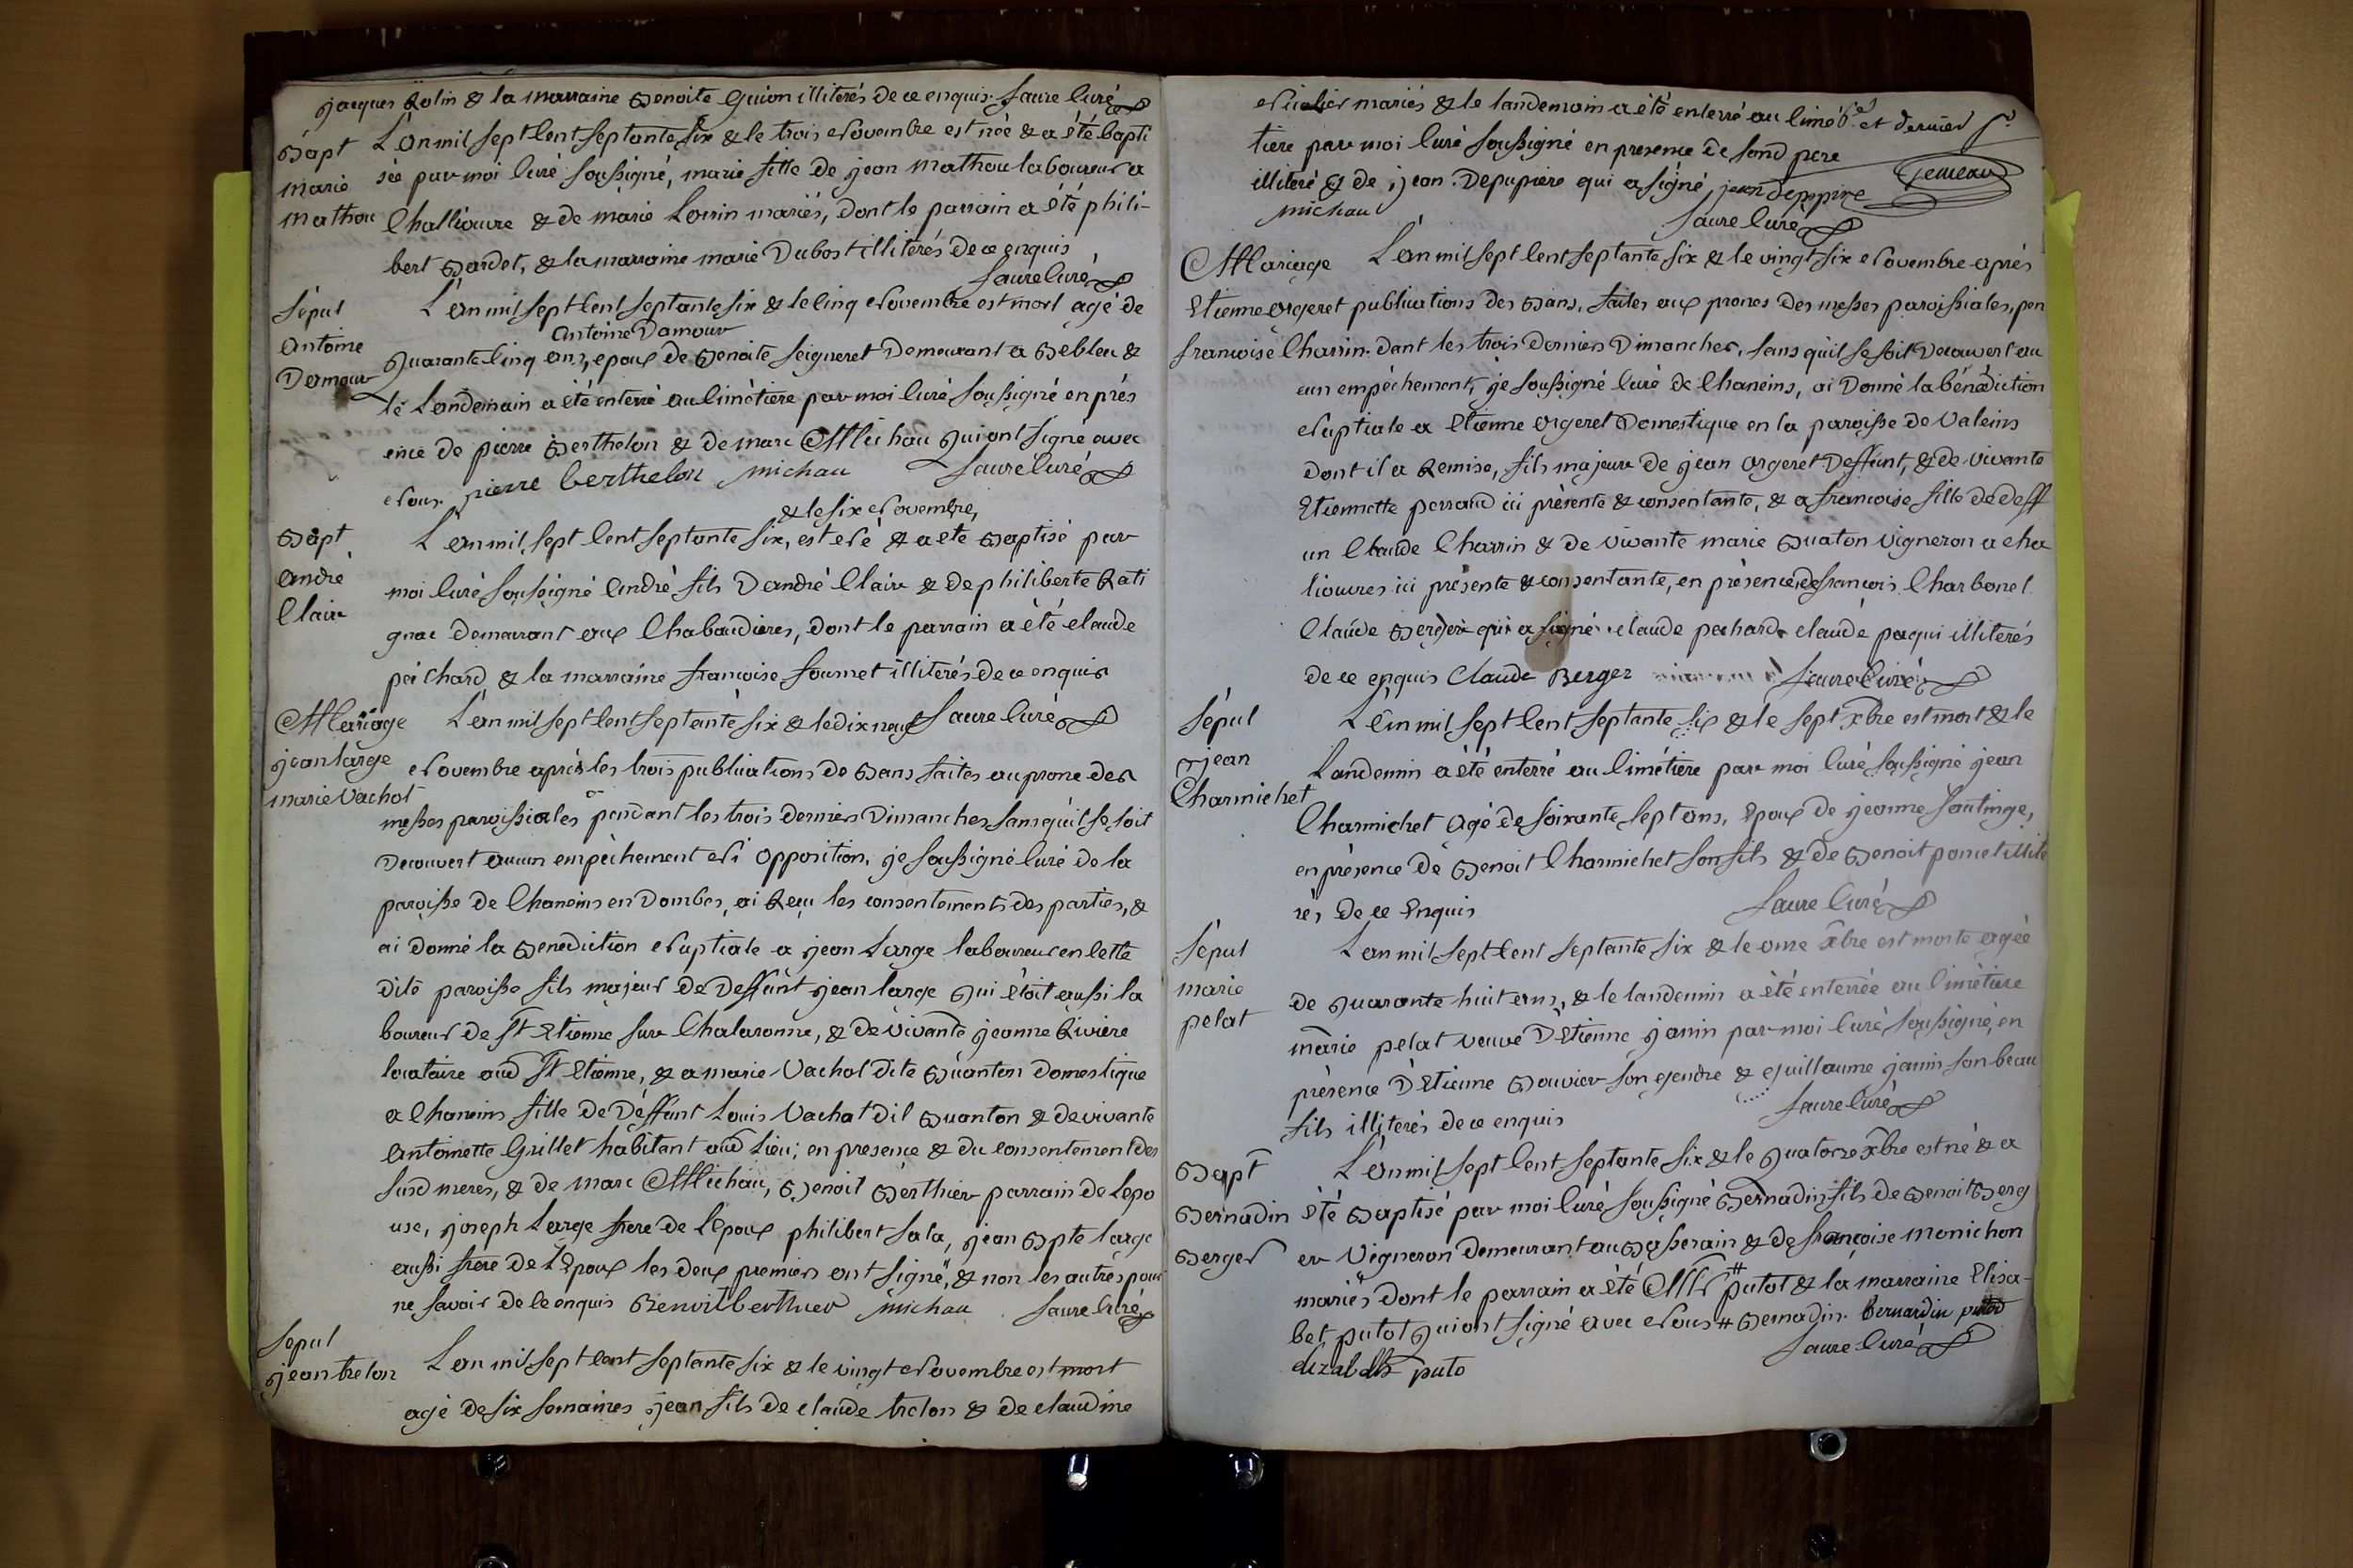 jacques Rolin & la marraine Benoite Guion illiterés de ce enquis. faure Curé
Bapt
marie
mathou
L'an mil sept Cent septante six & le trois Novembre est née & a été bapti
sée par moi Curé soussigné, marie fille de jean mathou laboureur a
Challiouvre & de marie Lorrin mariés, dont le parrain a été phili-
bert Bardet, & la marraine marie Dubost illiterés de ce enquis
faure Curé
Sépul
antoine
Damour
L'an mil sept Cent septante six & le Cinq Novembre est mort agé de
antoine Damour
Quarante Cinq ans, epoux de Benoite seigneret Demeurant a Bebleu &
le Landemain a été enterré au Cimétiere par moi Curé soussigné en prés
ence de pierre Berthelon & de marc Michau Qui ont signé avec
Nous. pierre berthelon michau faure Curé
& le six Novembre,
Bapt
andré
Clair
L'an mil sept Cent septante six, est Né & a eté Baptisé par
moi Curé soussigné andré fils D'andré Clair & de philiberte Rati
gnac demeurant aux Chabaudieres, dont le parrain a été claude
péchard & la marraine francoise fournet illiterés de ce enquis
faure Curé
Mariage
jean large
marie Vachot
L'an mil sept Cent septante six & le dix neuf
Novembre aprés les trois publications de Bans faites au prone des
messes paroissiales pendant les trois derniers Dimanches sans quil se soit
Decouvert aucun empêchement Ni opposition, je soussigné Curé de la
paroisse de Chaneins en Dombes, ai Reçu les consentements des parties, &
ai donné la Benediction Nuptiale a jean Large laboureur en Cette
dite paroisse fils majeur de Deffunt jean large Qui étoit aussi la
boureur de St Etienne sur Chalaronne, & de vivante jeanne Riviere
locataire aud St Etienne, & a marie Vachot dite Buanton domestique
a Chaneins fille de Déffunt Louis Vachat dit Buanton & de vivante
antoinette Grillet habitant aud Lieu; en presence & du consentement des
susd meres, & de marc Michau, Benoit Berthier parrain de Lepo
use, joseph Large frere de l'Epoux philibert sala, jean Bpte large
aussi frere de l'Epoux les deux premiers ont signé, & non les autres pour
ne savoir de Ce enquis Benoit berthier michau faure Curé
Sépul
jean trelon
L'an mil sept Cent septante six & le vingt Novembre est mort
agé de six semaines jean fils de claude trelon & de claudine
Nicolier mariés & le landemain a été enterré au Cimé
et dernier
tiere par moi Curé soussigné en presence de sond pere
illiteré & de jean Depupiere qui a signé, jean depupire
michau
faure Curé
Mariage
Etienne orgeret
francoise Charrin.
L'an mil sept Cent septante six & le vingt six Novembre aprés
publications des Bans, faites aux prones des messes paroissiales, pen
dant les trois derniers Dimanches, sans qu'il se soit decouvert au
cun empêchement, je soussigné Curé de Chaneins, ai Donné la bénédiction
Nuptiale a Etienne orgeret Domestique en la paroisse de Valeins
Dont il a Remise, fils majeur de jean orgeret Deffunt, & de vivante
Etiennette perraud ici présente & consentante, & a francoise fille de deff
un Claude Charrin & de vivante marie Buaton vigneron a cha
liouvres ici présente & consentante, en présence de francois Charbonel
Claude Berger qui a signé claude pechard claude paqui illiterés
de ce enquis Claude Berger faure Curé
Sépul
jean
Charmichet
L'an mil sept Cent septante six & le sept xbre est mort & le
Landemin a été enterré au Cimétiere par moi Curé soussigné jean
Charmichet agé de soixante sept ans, Epoux de jeanne Santinge,
en présence de Benoit Charmichet son fils & de Benoit poncet illité
rés de ce Enquis faure Curé
Sépul
marie
pelat
L'an mil sept Cent septante six & le onze xbre est morte agée
de Quarante huit ans, & le landemin a été enterrée au Cimétiere
marie pelat veuve D'Etienne janin par moi Curé soussigné, en
présence D'Etienne Bouvier son gendre & Guillaume janin son beau
fils illiterés de ce enquis faure Curé
Bapt
Bernadin
Berger
L'an mil sept Cent septante six & le Quatorze xbre est né & a
été Baptisé par moi Curé soussigné Bernadin fils de Benoit Berg
er Vigneron demeurant au Basserain & de francoise monichon
mariés dont le parrain a été Mr # putot & la marraine Elisa-
bet putot Qui ont signé avec Nous # Bernadin. bernardin putod
faure Curé
elizabeth puto